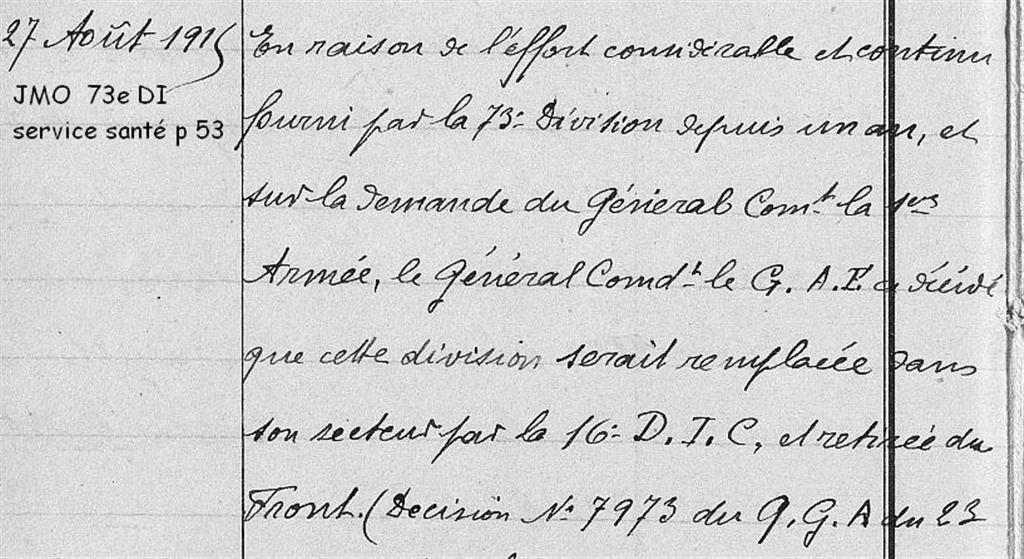 27 Août 1915
JMO 73e DI
service santé p 53
En raison de l'éffort considerable et continu
fourni par la 73e Division depuis un an, et
sur la demande du Général Comt la 1ere
Armée, le Général Comdt le G. A. E. a décidé
que cette division serait remplacée dans
son secteur par la 16e D. I. C, et retirée du
Front. (Decision No 7973 du Q. G. A du 23